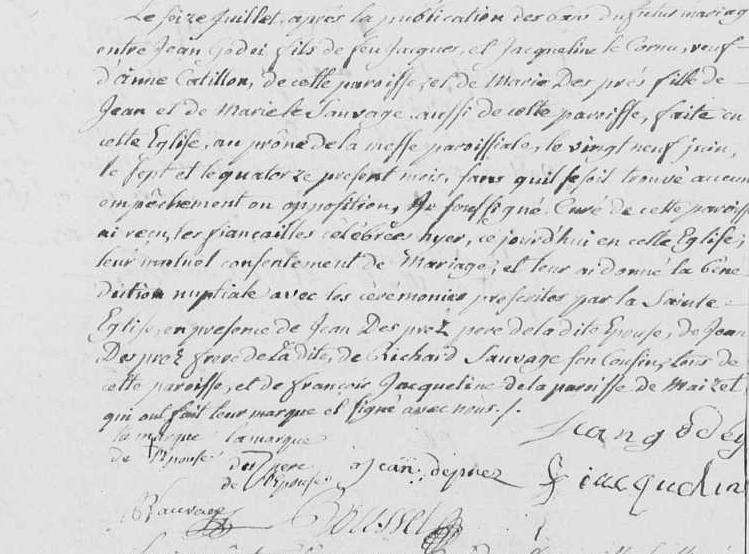 Le seize Juillet, après la publication des bans du futur mariag
entre Jean Godei fils de feu Jacques, et Jacqueline le Cornu, veuf
d'anne Catillon, de cette paroisse, et de Marie Des prés fille de
Jean et de Marie le Sauvage aussi de cette paroisse, faite en
cette Eglise, au prône de la messe paroissiale, le vingt neuf juin,
le sept et le quatorze présent mois, sans qu'il se soit trouvé aucun
empêchement ou opposition, Je soussigné Curé de cette paroiss
ai reçu, les fiançailles célébrées hyer, ce jourd'hui en cette Eglise,
leur mutuel consentement de Mariage; et leur ai donné la béné
diction nuptiale avec les cérémonies prescrites par la Sainte
Eglise, en presence de Jean Des prez pere de la dite Epouse, de Jean
Des prez frere de la dite, de Richard Sauvage son Cousin, tous de
cette paroisse, et de francois Jacqueline de la paroisse de Maizet
qui ont fait leur marque et signé avec nous ./.
Jean godey
la marque la marque
de l'Epouse du pere
de l'Epouse Jean deprez f jacquelin
R Sauvage Roussel